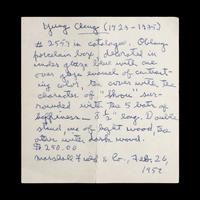 Yung Cheng (1723-1735)
# 2557 in catalogue. Oblong
porcelain box, decorated in
under glaze blue with one
over glaze enamel of contrast-
ing color, the cover with the
character of "Shou" sur-
rounded with the 5 bats of
happiness — 8 ½" long. Double
stand, one of light wood, the
other with dark wood.
$250.00
Marshall Field & Co., Feb. 26,
1952